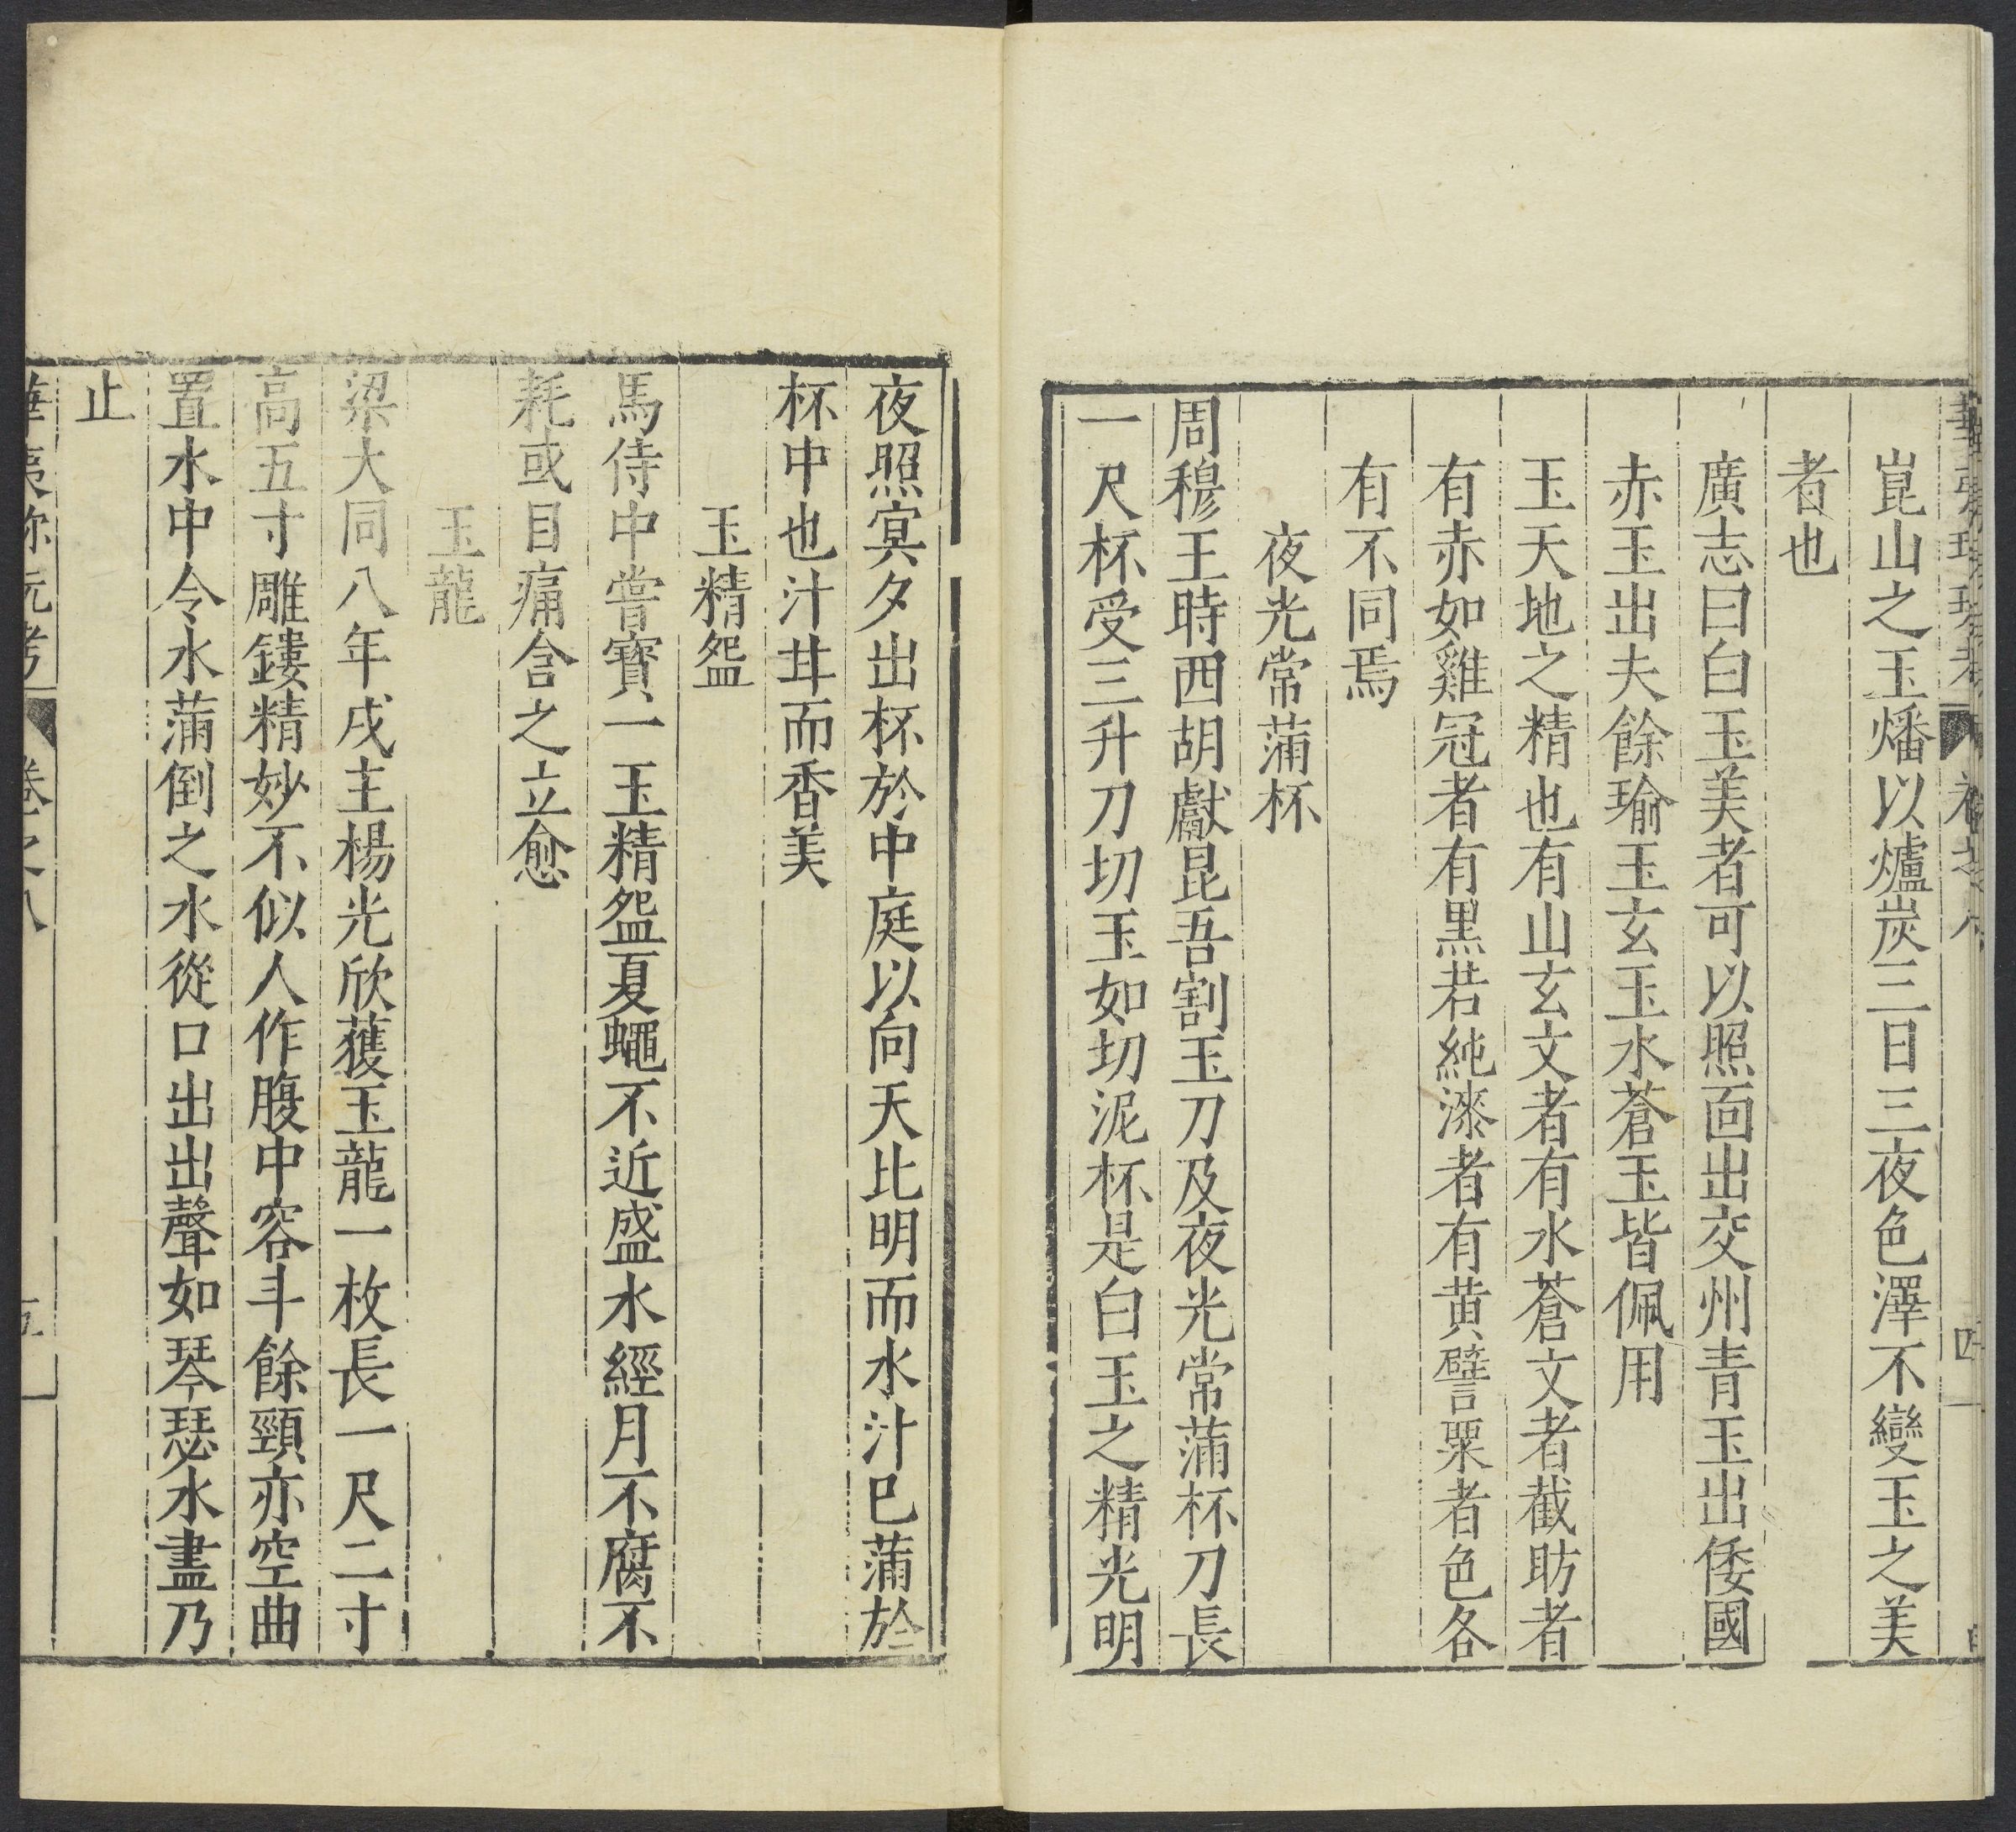 崑山之玉燔以爐炭三日三夜色澤不變玉之美
者也
廣志曰白玉美者可以照面出交州青玉出倭國
赤玉出夫餘瑜玉玄玉水蒼玉皆佩用
玉天地之精也有山玄文者有水蒼文者截肪者
有赤如雞冠者有黑若純漆者有黄譬粟者色各
有不同焉
夜光常蒲杯
周穆王時西胡獻昆吾割玉刀及夜光常蒲杯刀長
一尺杯受三升刀切玉如切泥杯是白玉之精光明
夜照冥夕出杯於中庭以向天比明而水汁巳蒲於
杯中也汁甘而香美
玉精盌
馬侍中嘗寳一玉精盌夏蠅不近盛水經月不腐不
耗或目痛含之立愈
玉龍
梁大同八年戍主楊光欣獲玉龍一枚長一尺二寸
高五寸雕鏤精妙不似人作腹中容斗餘頸亦空曲
置水中令水蒲倒之水從口出出聲如琴瑟水盡乃
止
華夷珍玩考 卷之八 五